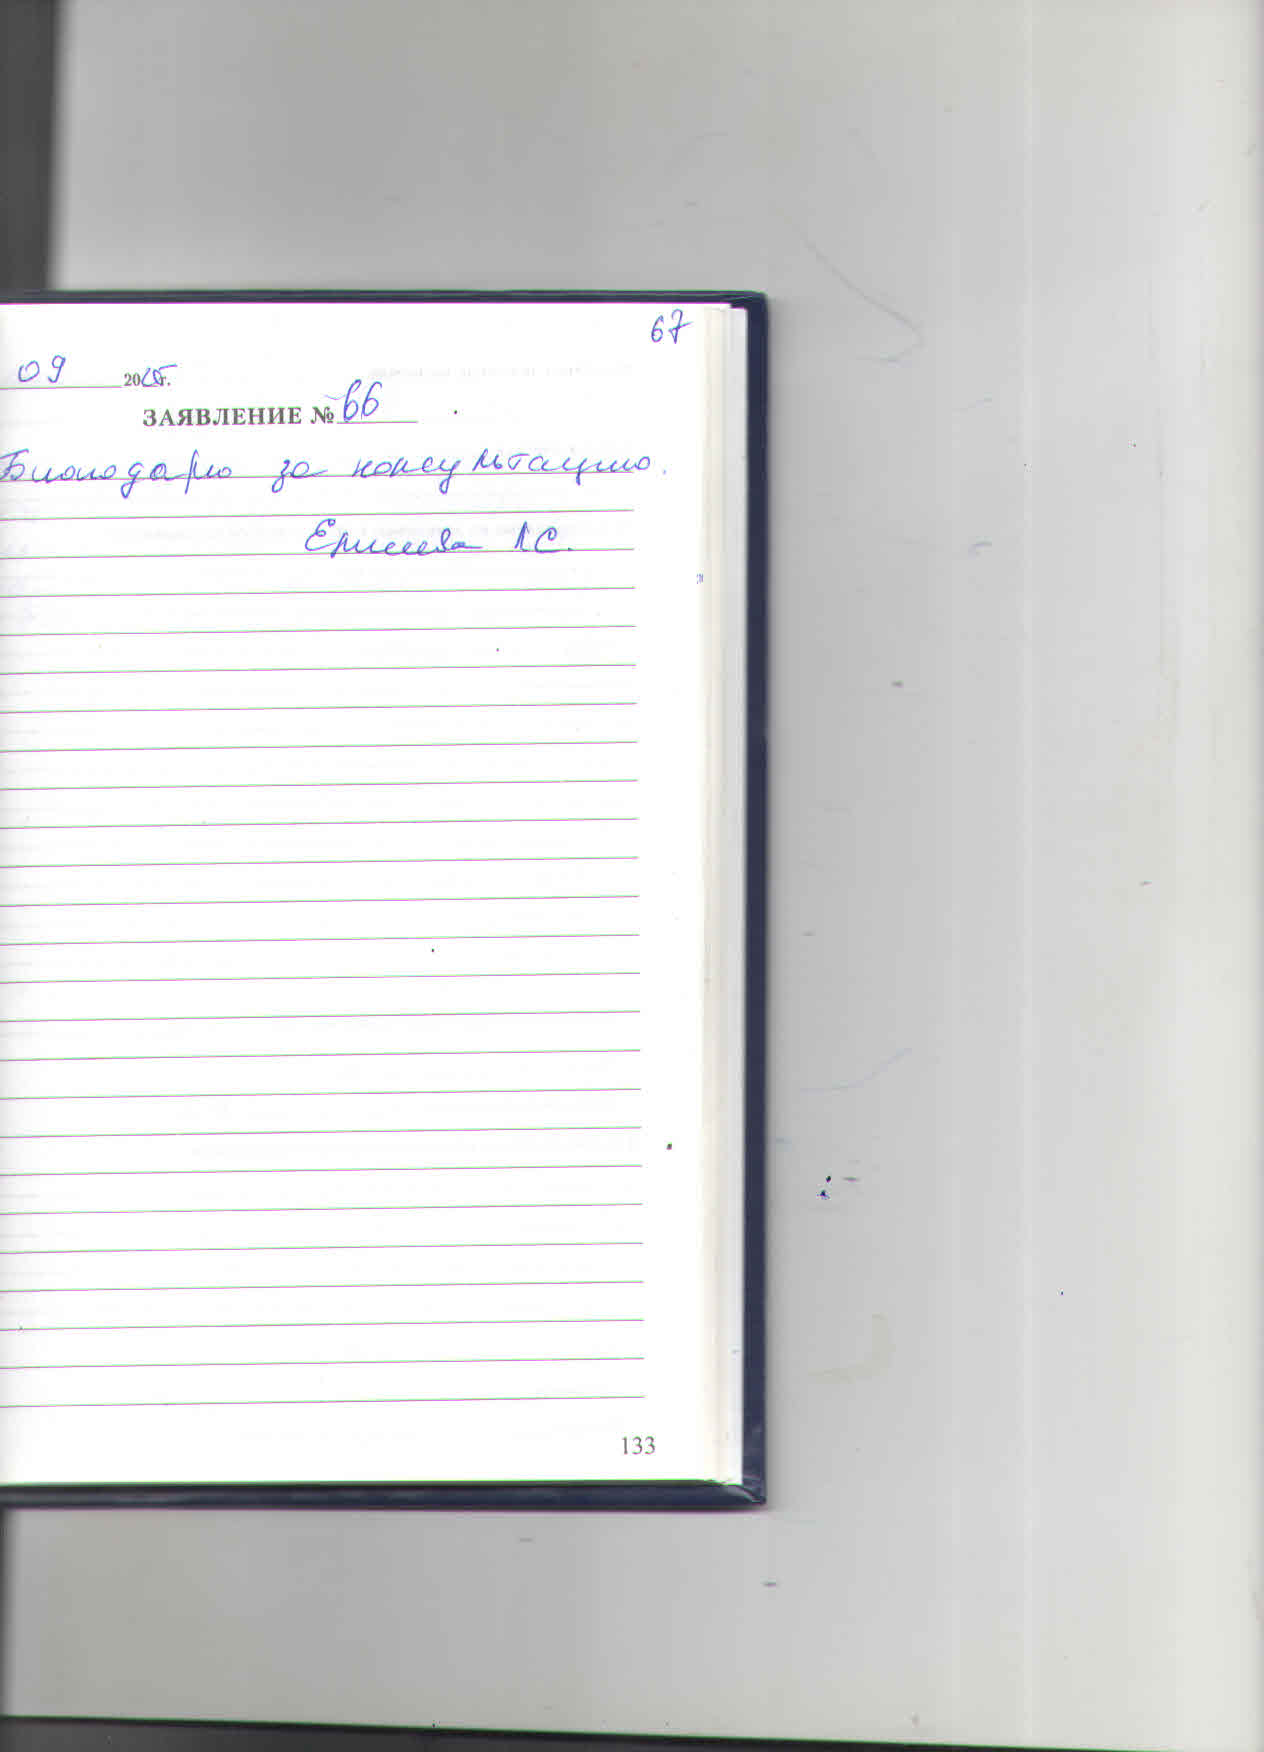 67
09 2015г.
ЗАЯВЛЕНИЕ № 66
Благодарю за консультацию.
Л.С.
133